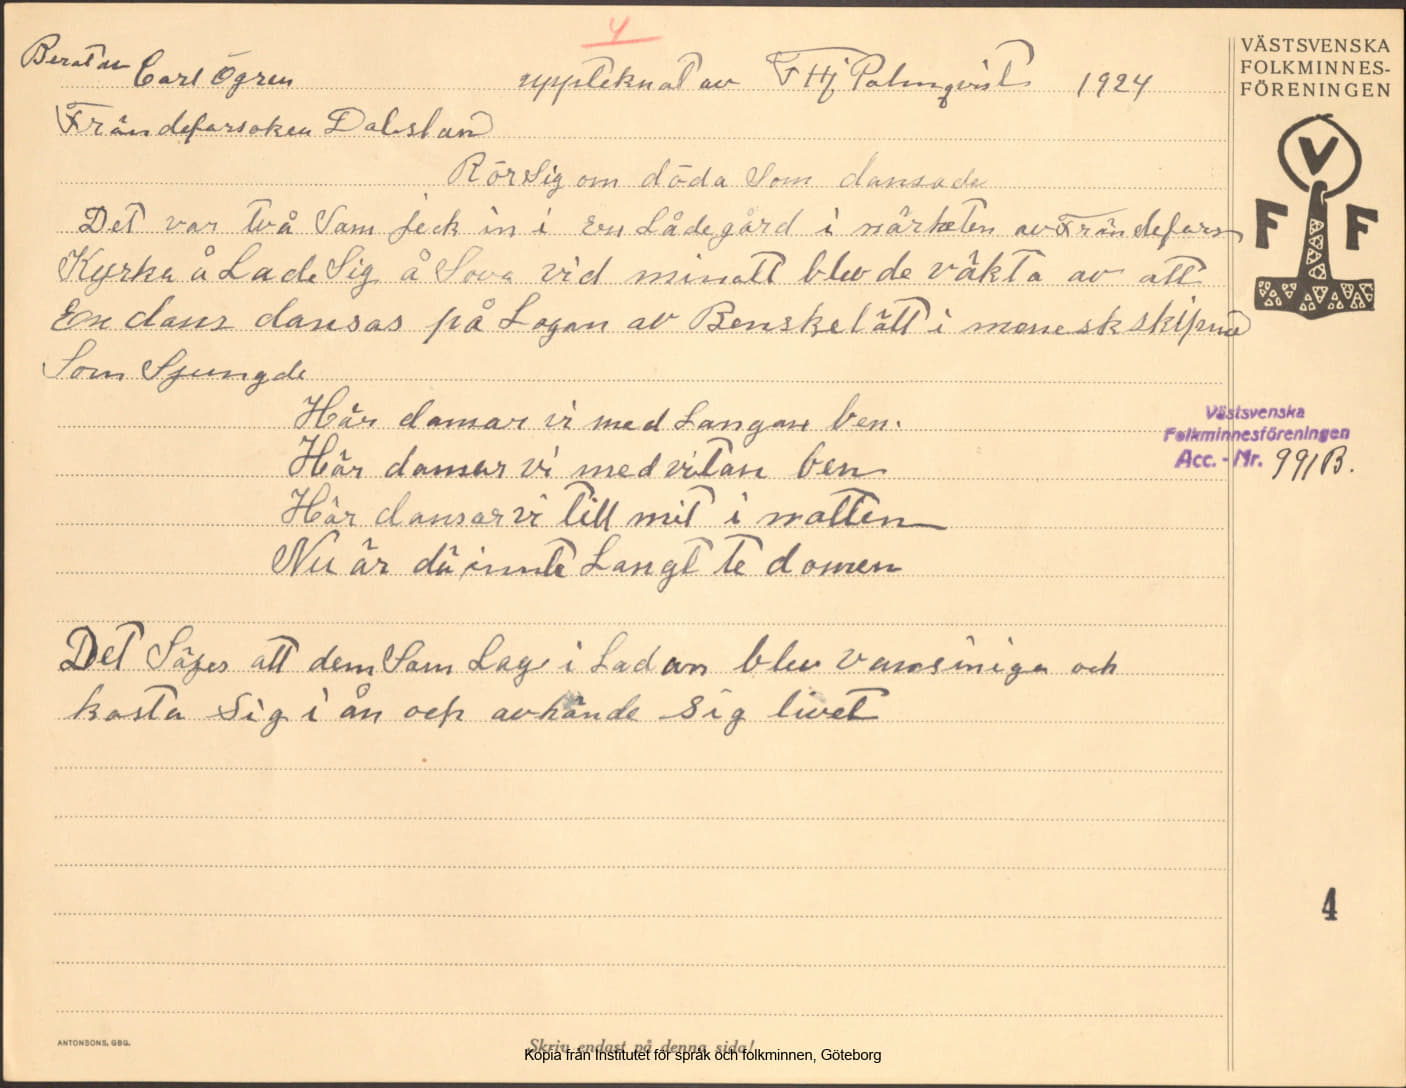 4
Berat av Carl Ögren uppteknat av F Hj Palmqvist 1924
Frändeforsoken Dalsland
Rör sig om döda Som dansade
Det var två Som jeck in i en Lådegård i närheten av Frändefors
Kyrka å Lade Sig å Sova vid minatt blev de väkta av att
En dans dansas på Logan av Benskelätt i meneskskipnad
Som Sjungde
Här dansar vi med Langan ben.
Här dansar vi med vitan ben
Här dansar vi till mit i natten
Nu är dä innte Langt te domen
Det Säges att dem Som Lag i Ladan blev vansiniga och
kasta Sig i ån och avhände Sig livet
VÄSTSVENSKA
FOLKMINNES-
FÖRENINGEN
V
F F
Västsvenska
Folkminnesföreningen
Acc. - Nr. 991B.
4
ANTONSONS, GBG.
Skriv endast på denna sida!
Kopia från Institutet för språk och folkminnen, Göteborg